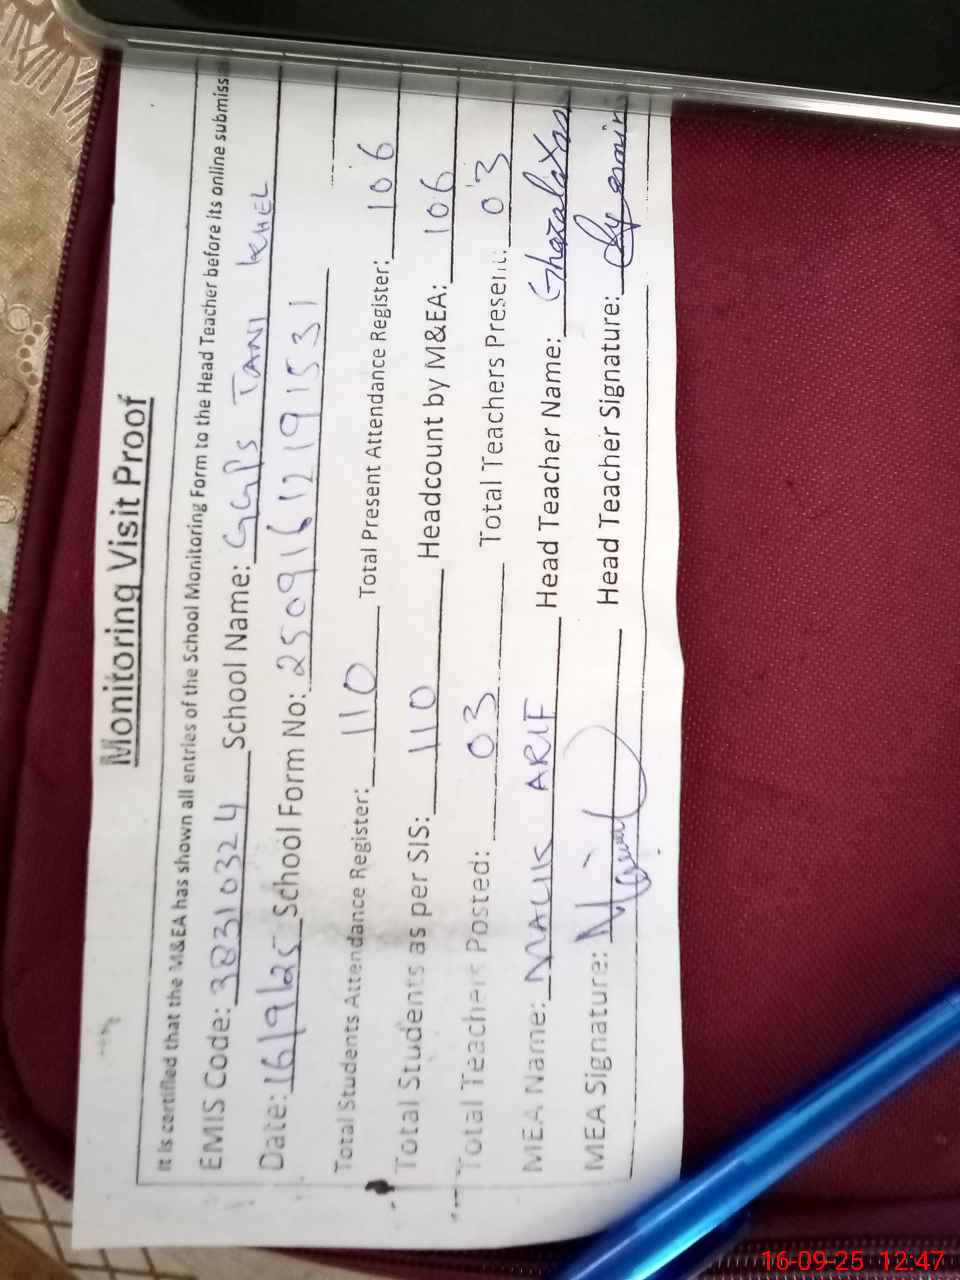 Monitoring Visit Proof
It is certified that the M&EA has shown all entries of the School Monitoring Form to the Head Teacher before its online submiss
EMIS Code: 38310324 School Name: GGPS TANI KHEL
Date: 16/9/25 School Form No: 25091612191531
Total Students Attendance Register: 110 Total Present Attendance Register: 106
Total Students as per SIS: 110 Headcount by M&EA: 106
Total Teachers Posted: 03 Total Teachers Present: 03
MEA Name: MALIK ARIF Head Teacher Name: Ghazala
MEA Signature: Head Teacher Signature:
16-09-25 12:47